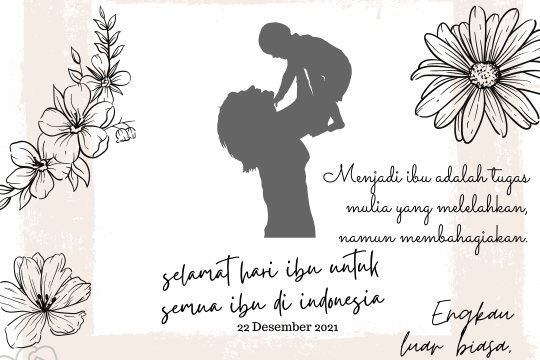 Menjadi ibu adalah tugas
mulia yang melelahkan,
namun membahagiakan.
selamat hari ibu untuk
semua ibu di indonesia
22 Desember 2021
Engkau
luar biasa.